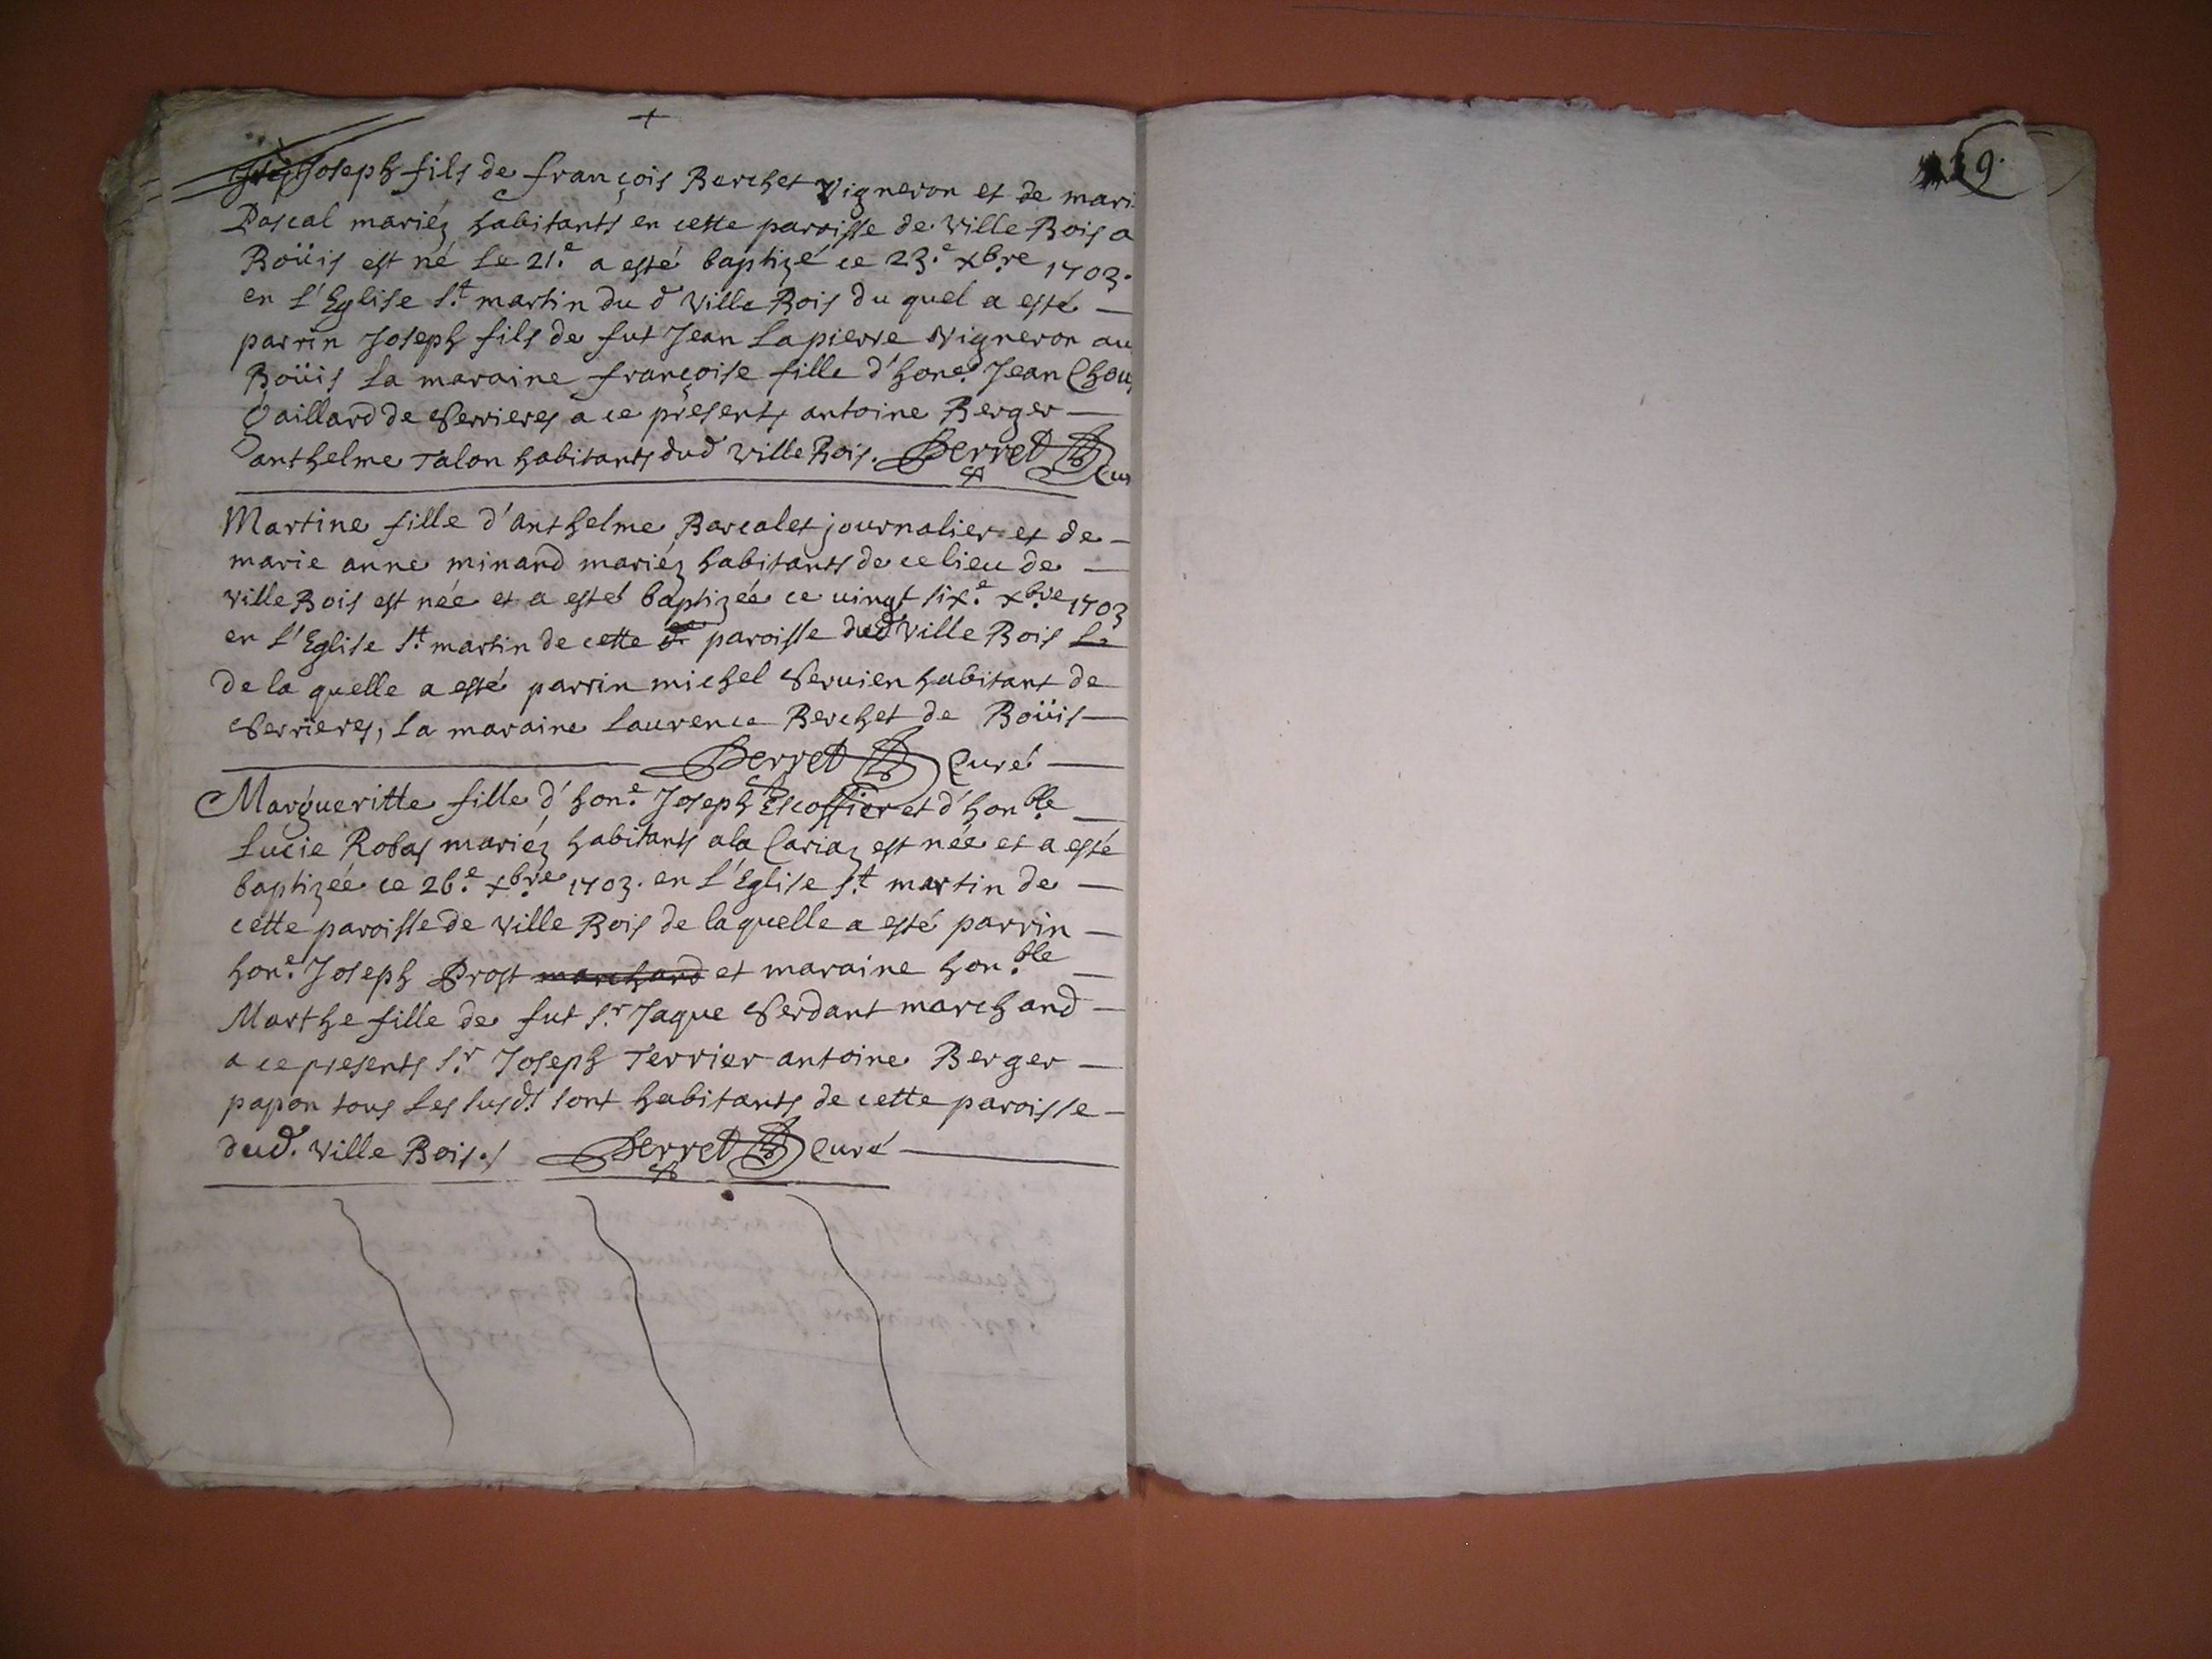 +
Joseph fils de françois Berchet vigneron et de mari
Pascal mariéz habitants en cette paroisse de ville Bois a
Boüis est né le 21.e a esté baptizé ce 23.e xbre 1703.
en l'Eglise St martin du d ville Bois du quel a esté
parrin Joseph fils de fut Jean Lapierre vigneron au
Boüis la maraine françoise fille d'hone. Jean Chou
Gaillard de Serrieres a ce présents antoine Berger
anthelme Talon habitants dud ville Bois. Perret Cur
Martine fille d'anthelme Barcalet journalier et de
marie anne minard mariéz habitants de ce lieu de
ville Bois est née et a esté baptizée ce uingt six.e xbre 1703
en l'Eglise St martin de cette paroisse dud ville Bois
de la quelle a esté parrin michel Seruien habitant de
Serrieres, la maraine Laurence Berchet de Boüis
Perret Curé
Margueritte fille d'hon.e Joseph Escoffier et d'honble
Lucie Robas mariéz habitants ala Cariaz est née et a esté
baptizée ce 26.e xbre 1703. en l'Eglise St martin de
cette paroisse de ville Bois de laquelle a esté parrin
hon.e Joseph Prost marchand et maraine honble
Marthe fille de fut Sr Jaque Verdant marchand
a ce presents Sr Joseph Terrier antoine Berger
papon tous les susdts sont habitants de cette paroisse
dud. ville Bois./ Perret Curé
9.